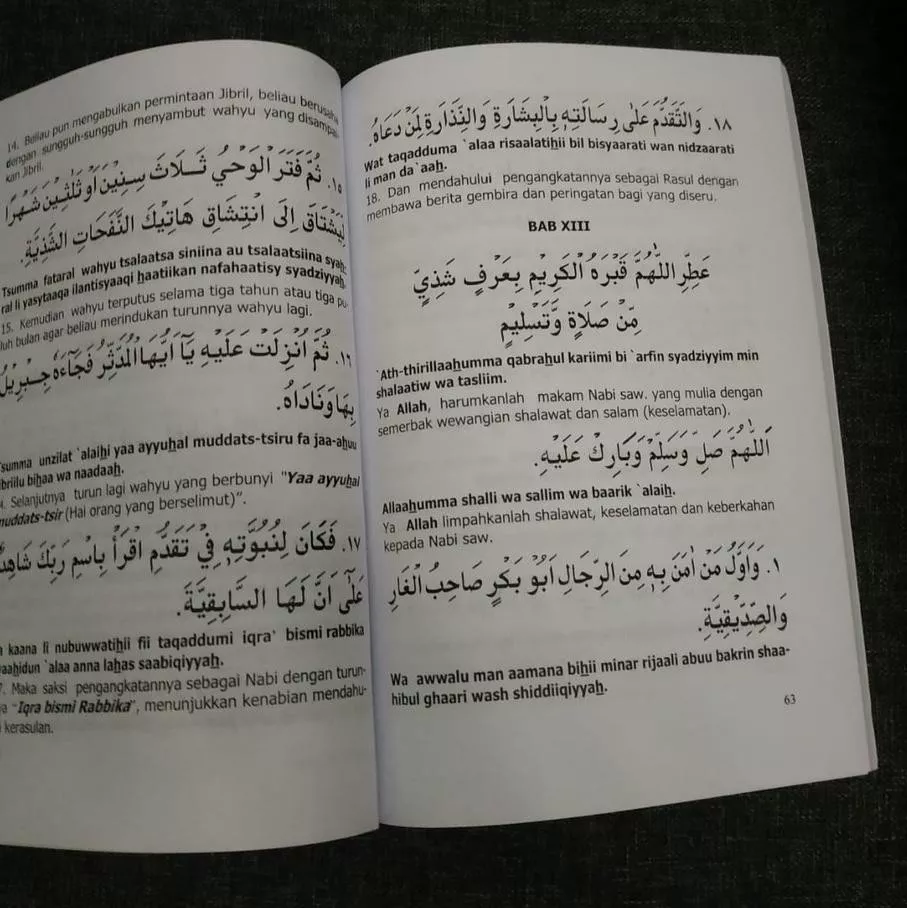 14. Beliau pun mengabulkan permintaan Jibril, beliau berusaha
dengan sungguh-sungguh menyambut wahyu yang disampai-
kan Jibril.
١٥. ثُمَّ فَتَرَ الْوَحْيُ ثَلَاثَ سِنِيْنَ اَوْ ثَلٰثِيْنَ شَهْرًا
لِيَشْتَاقَ اِلَى انْتِشَاقِ هَاتِيْكَ النَّفَحَاتِ الشَّذِيَّةِ.
Tsumma fataral wahyu tsalaatsa siniina au tsalaatsiina syah-
ral li yasytaaqa ilantisyaaqi haatiikan nafahaatisy syadziyyah.
15. Kemudian wahyu terputus selama tiga tahun atau tiga pu-
luh bulan agar beliau merindukan turunnya wahyu lagi.
١٦. ثُمَّ اُنْزِلَتْ عَلَيْهِ يَآ اَيُّهَا الْمُدَّثِّرُ فَجَآءَهٗ جِبْرِيْلُ
بِهَا وَنَادَاهُ.
summa unzilat `alaihi yaa ayyuhal muddats-tsiru fa jaa-ahuu
ibriilu bihaa wa naadaah.
. Selanjutnya turun lagi wahyu yang berbunyi "Yaa ayyuhal
muddats-tsir (Hai orang yang berselimut)".
١٧. فَكَانَ لِنُبُوَّتِهٖ فِيْ تَقَدُّمِ اقْرَأْ بِاسْمِ رَبِّكَ شَاهِدٌ
عَلٰٓى اَنَّ لَهَا السَّابِقِيَّةَ.
a kaana li nubuwwatihii fii taqaddumi iqra' bismi rabbika
aahidun `alaa anna lahas saabiqiyyah.
7. Maka saksi pengangkatannya sebagai Nabi dengan turun-
a "Iqra bismi Rabbika", menunjukkan kenabian mendahu-
i kerasulan.
١٨. وَالتَّقَدُّمَ عَلٰى رِسَالَتِهٖ بِالْبِشَارَةِ وَالنِّذَارَةِ لِمَنْ دَعَاهُ.
Wat taqadduma `alaa risaalatihii bil bisyaarati wan nidzaarati
li man da`aah.
18. Dan mendahului pengangkatannya sebagai Rasul dengan
membawa berita gembira dan peringatan bagi yang diseru.
BAB XIII
عَطِّرِ اللّٰهُمَّ قَبْرَهُ الْكَرِيْمَ بِعَرْفٍ شَذِيٍّ
مِّنْ صَلَاةٍ وَّتَسْلِيْمٍ
`Ath-thirillaahumma qabrahul kariimi bi `arfin syadziyyim min
shalaatiw wa tasliim.
Ya Allah, harumkanlah makam Nabi saw. yang mulia dengan
semerbak wewangian shalawat dan salam (keselamatan).
اَللّٰهُمَّ صَلِّ وَسَلِّمْ وَبَارِكْ عَلَيْهِ.
Allaahumma shalli wa sallim wa baarik `alaih.
Ya Allah limpahkanlah shalawat, keselamatan dan keberkahan
kepada Nabi saw.
١. وَاَوَّلُ مَنْ اٰمَنَ بِهٖ مِنَ الرِّجَالِ اَبُوْ بَكْرٍ صَاحِبُ الْغَارِ
وَالصِّدِّيْقِيَّةِ.
Wa awwalu man aamana bihii minar rijaali abuu bakrin shaa-
hibul ghaari wash shiddiiqiyyah.
63